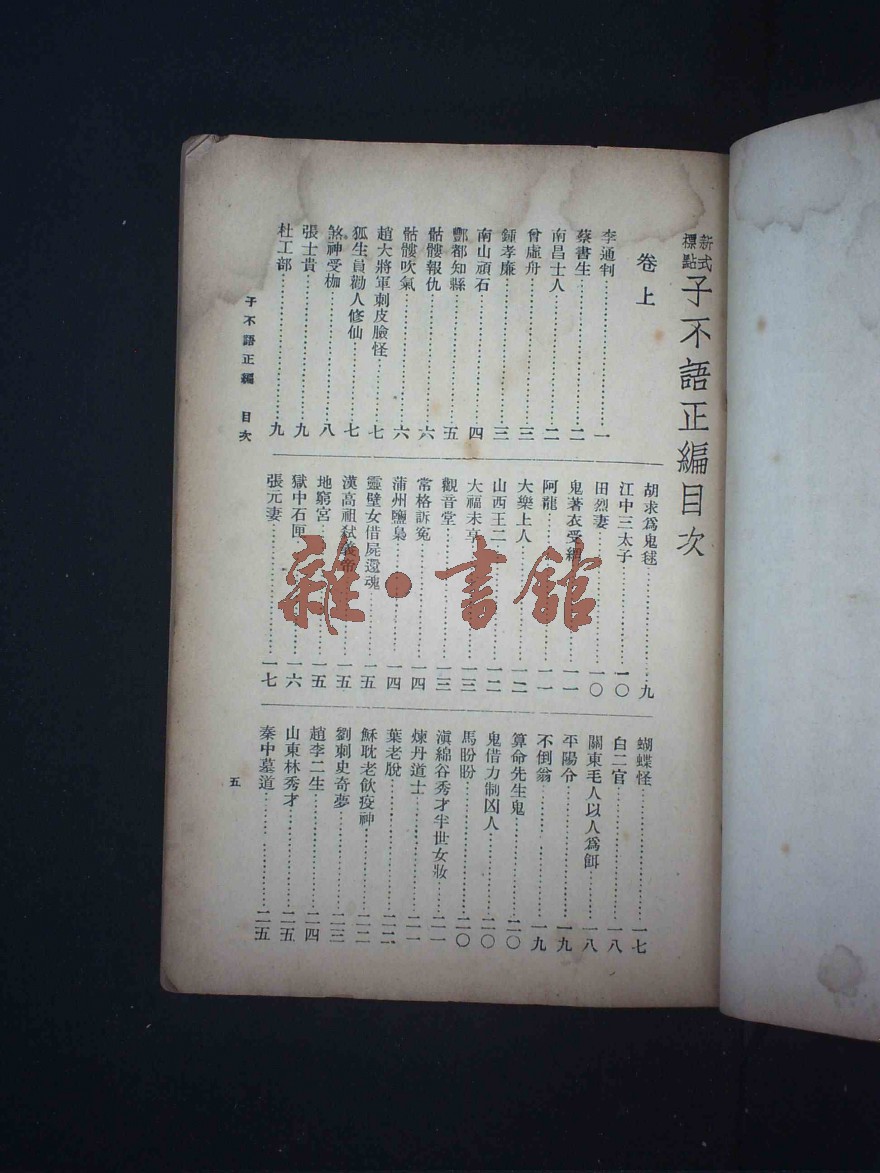 新式
標點
子不語正編目次
卷上
李通判……………一
蔡書生……………二
南昌士人……………二
曾虛舟……………三
鍾孝廉……………三
南山頑石……………四
酆都知縣……………五
骷髏報仇……………六
骷髏吹氣……………六
趙大將軍刺皮臉怪……………七
狐生員勸人修仙……………七
煞神受枷……………八
張士貴……………九
杜工部……………九
胡求爲鬼毬……………九
江中三太子……………一〇
田烈妻……………一〇
鬼著衣受網……………一一
阿龍……………一一
大樂上人……………一二
山西王二……………一二
大福未享……………一三
觀音堂……………一三
常格訴冤……………一四
蒲州鹽梟……………一四
靈壁女借屍還魂……………一五
漢高祖弒義帝……………一五
地窮宮……………一五
獄中石匣……………一六
張元妻……………一七
蝴蝶怪……………一七
白二官……………一八
關東毛人以人爲餌……………一八
平陽令……………一九
不倒翁……………一九
算命先生鬼……………二〇
鬼借力制凶人……………二〇
馬盼盼……………二〇
滇綿谷秀才半世女妝……………二一
煉丹道士……………二一
葉老脫……………二二
穌耽老飲疫神……………二二
劉刺史奇夢……………二三
趙李二生……………二四
山東林秀才……………二五
秦中墓道……………二五
子不語正編 目次
五
雜·書館